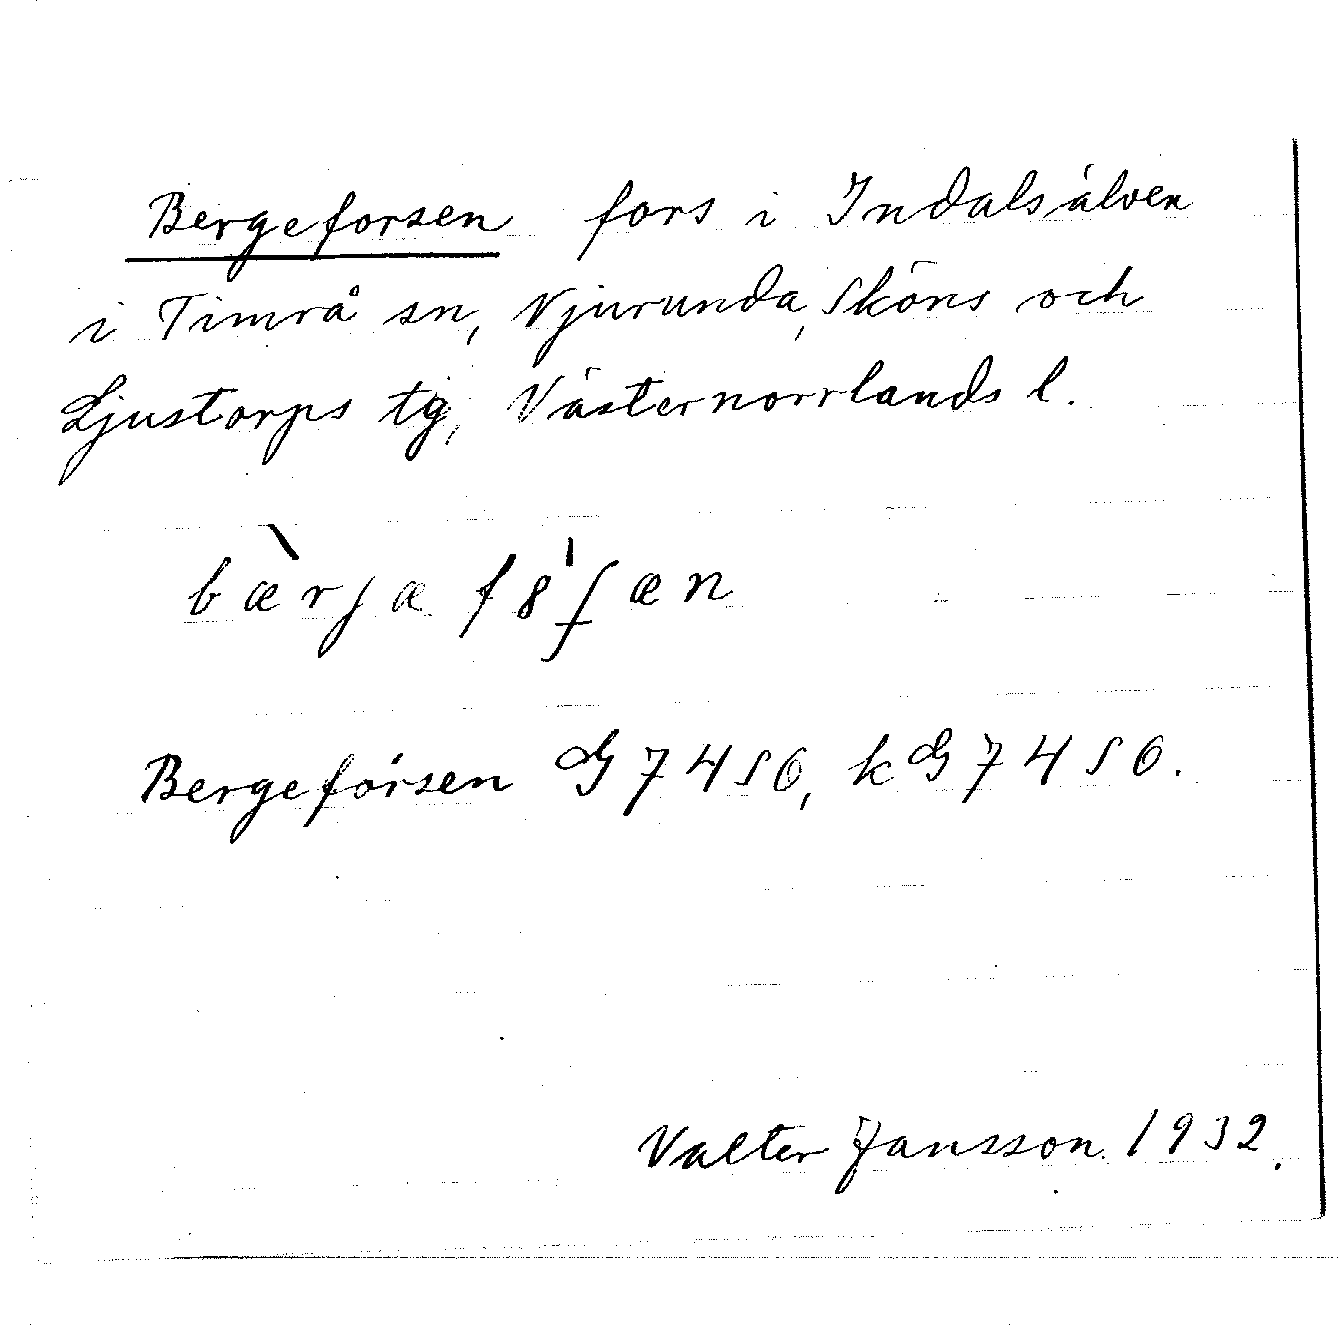 Bergeforsen fors i Indalsälven
i Timrå sn, Njurunda, Sköns och
Ljustorps tg, Västernorrlands l.
bæ̀rjæ f8ꞌʃæn
Bergeforsen G 7450, kG 7450.
Valter Jansson 1932.